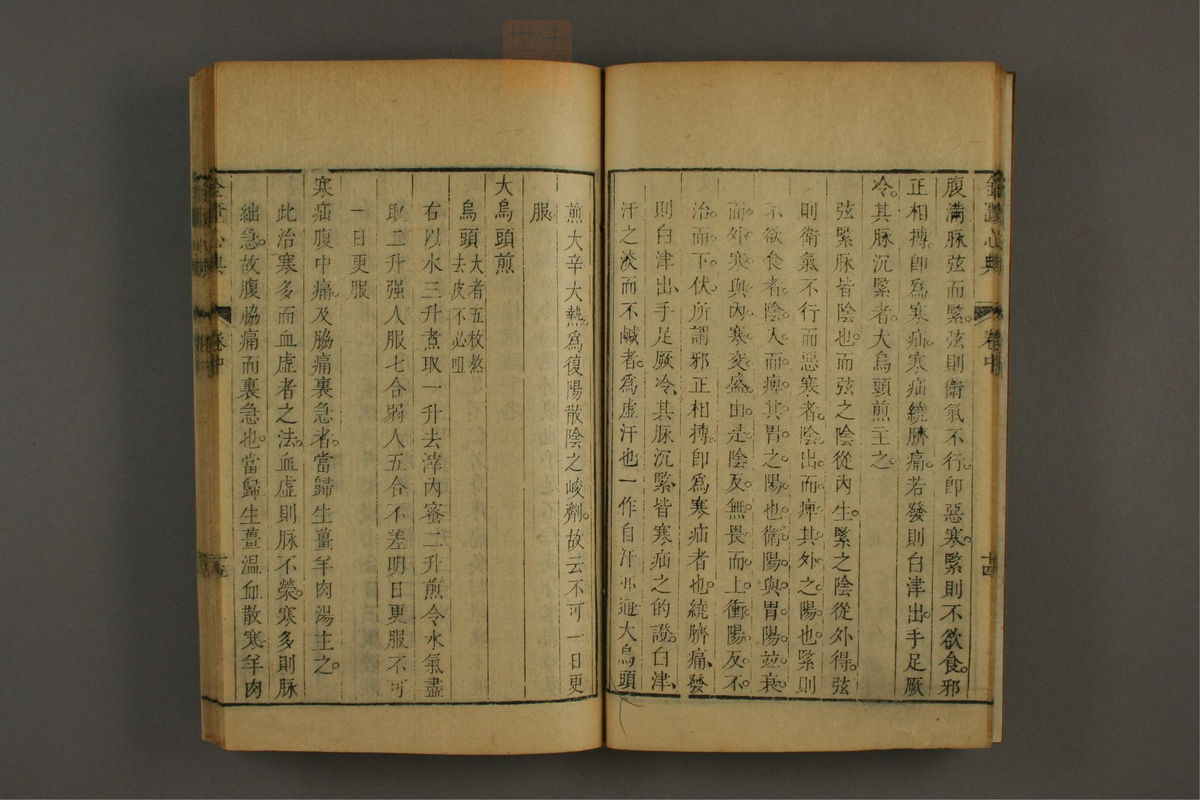 金匱心典 卷中 十四
腹滿脉弦而緊。弦則衛氣不行。卽惡寒。緊則不欲食。邪
正相搏。卽爲寒疝。寒疝繞臍痛。若發則白津出。手足厥
冷。其脉沉緊者。大烏頭煎主之。
弦緊脉皆陰也。而弦之陰從內生。緊之陰從外得。弦
則衛氣不行而惡寒者。陰出而痺其外之陽也。緊則
不欲食者。陰入而痺其胃之陽也。衛陽與胃陽竝衰。
而外寒與內寒交盛。由是陰反無畏而上衝。陽反不
治而下伏。所謂邪正相搏。卽爲寒疝者也。繞臍痛、發
則白津出、手足厥冷、其脉沉緊、皆寒疝之的證。白津、
汗之淡而不鹹者。爲虛汗也。一作自汗亦通大烏頭
煎大辛大熱。爲復陽散陰之峻劑。故云不可一日更
服。
大烏頭煎
烏頭大者五枚熬去皮不必咀
右以水三升煮取一升去滓內蜜二升煎令水氣盡
取二升强人服七合弱人五合不差明日更服不可
一日更服
寒疝腹中痛。及脇痛裏急者。當歸生薑羊肉湯主之。
此治寒多而血虛者之法。血虛則脉不榮。寒多則脉
絀急。故腹脇痛而裏急也。當歸生薑溫血散寒。羊肉
金匱心典 卷中